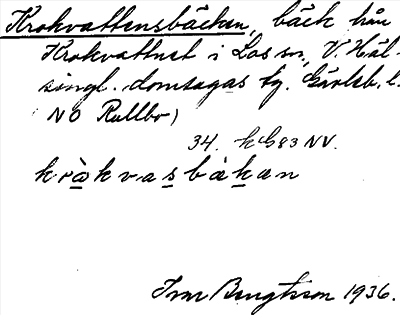 Krokvattensbäcken, bäck från
Krokvattnet i Los sn, V. Häl-
singl. domsagas tg. Gävleb. l.
NO Rullbo)
34. HG83 NV.
kròkvasbäkæn
Ivar Bengtsson 1936.